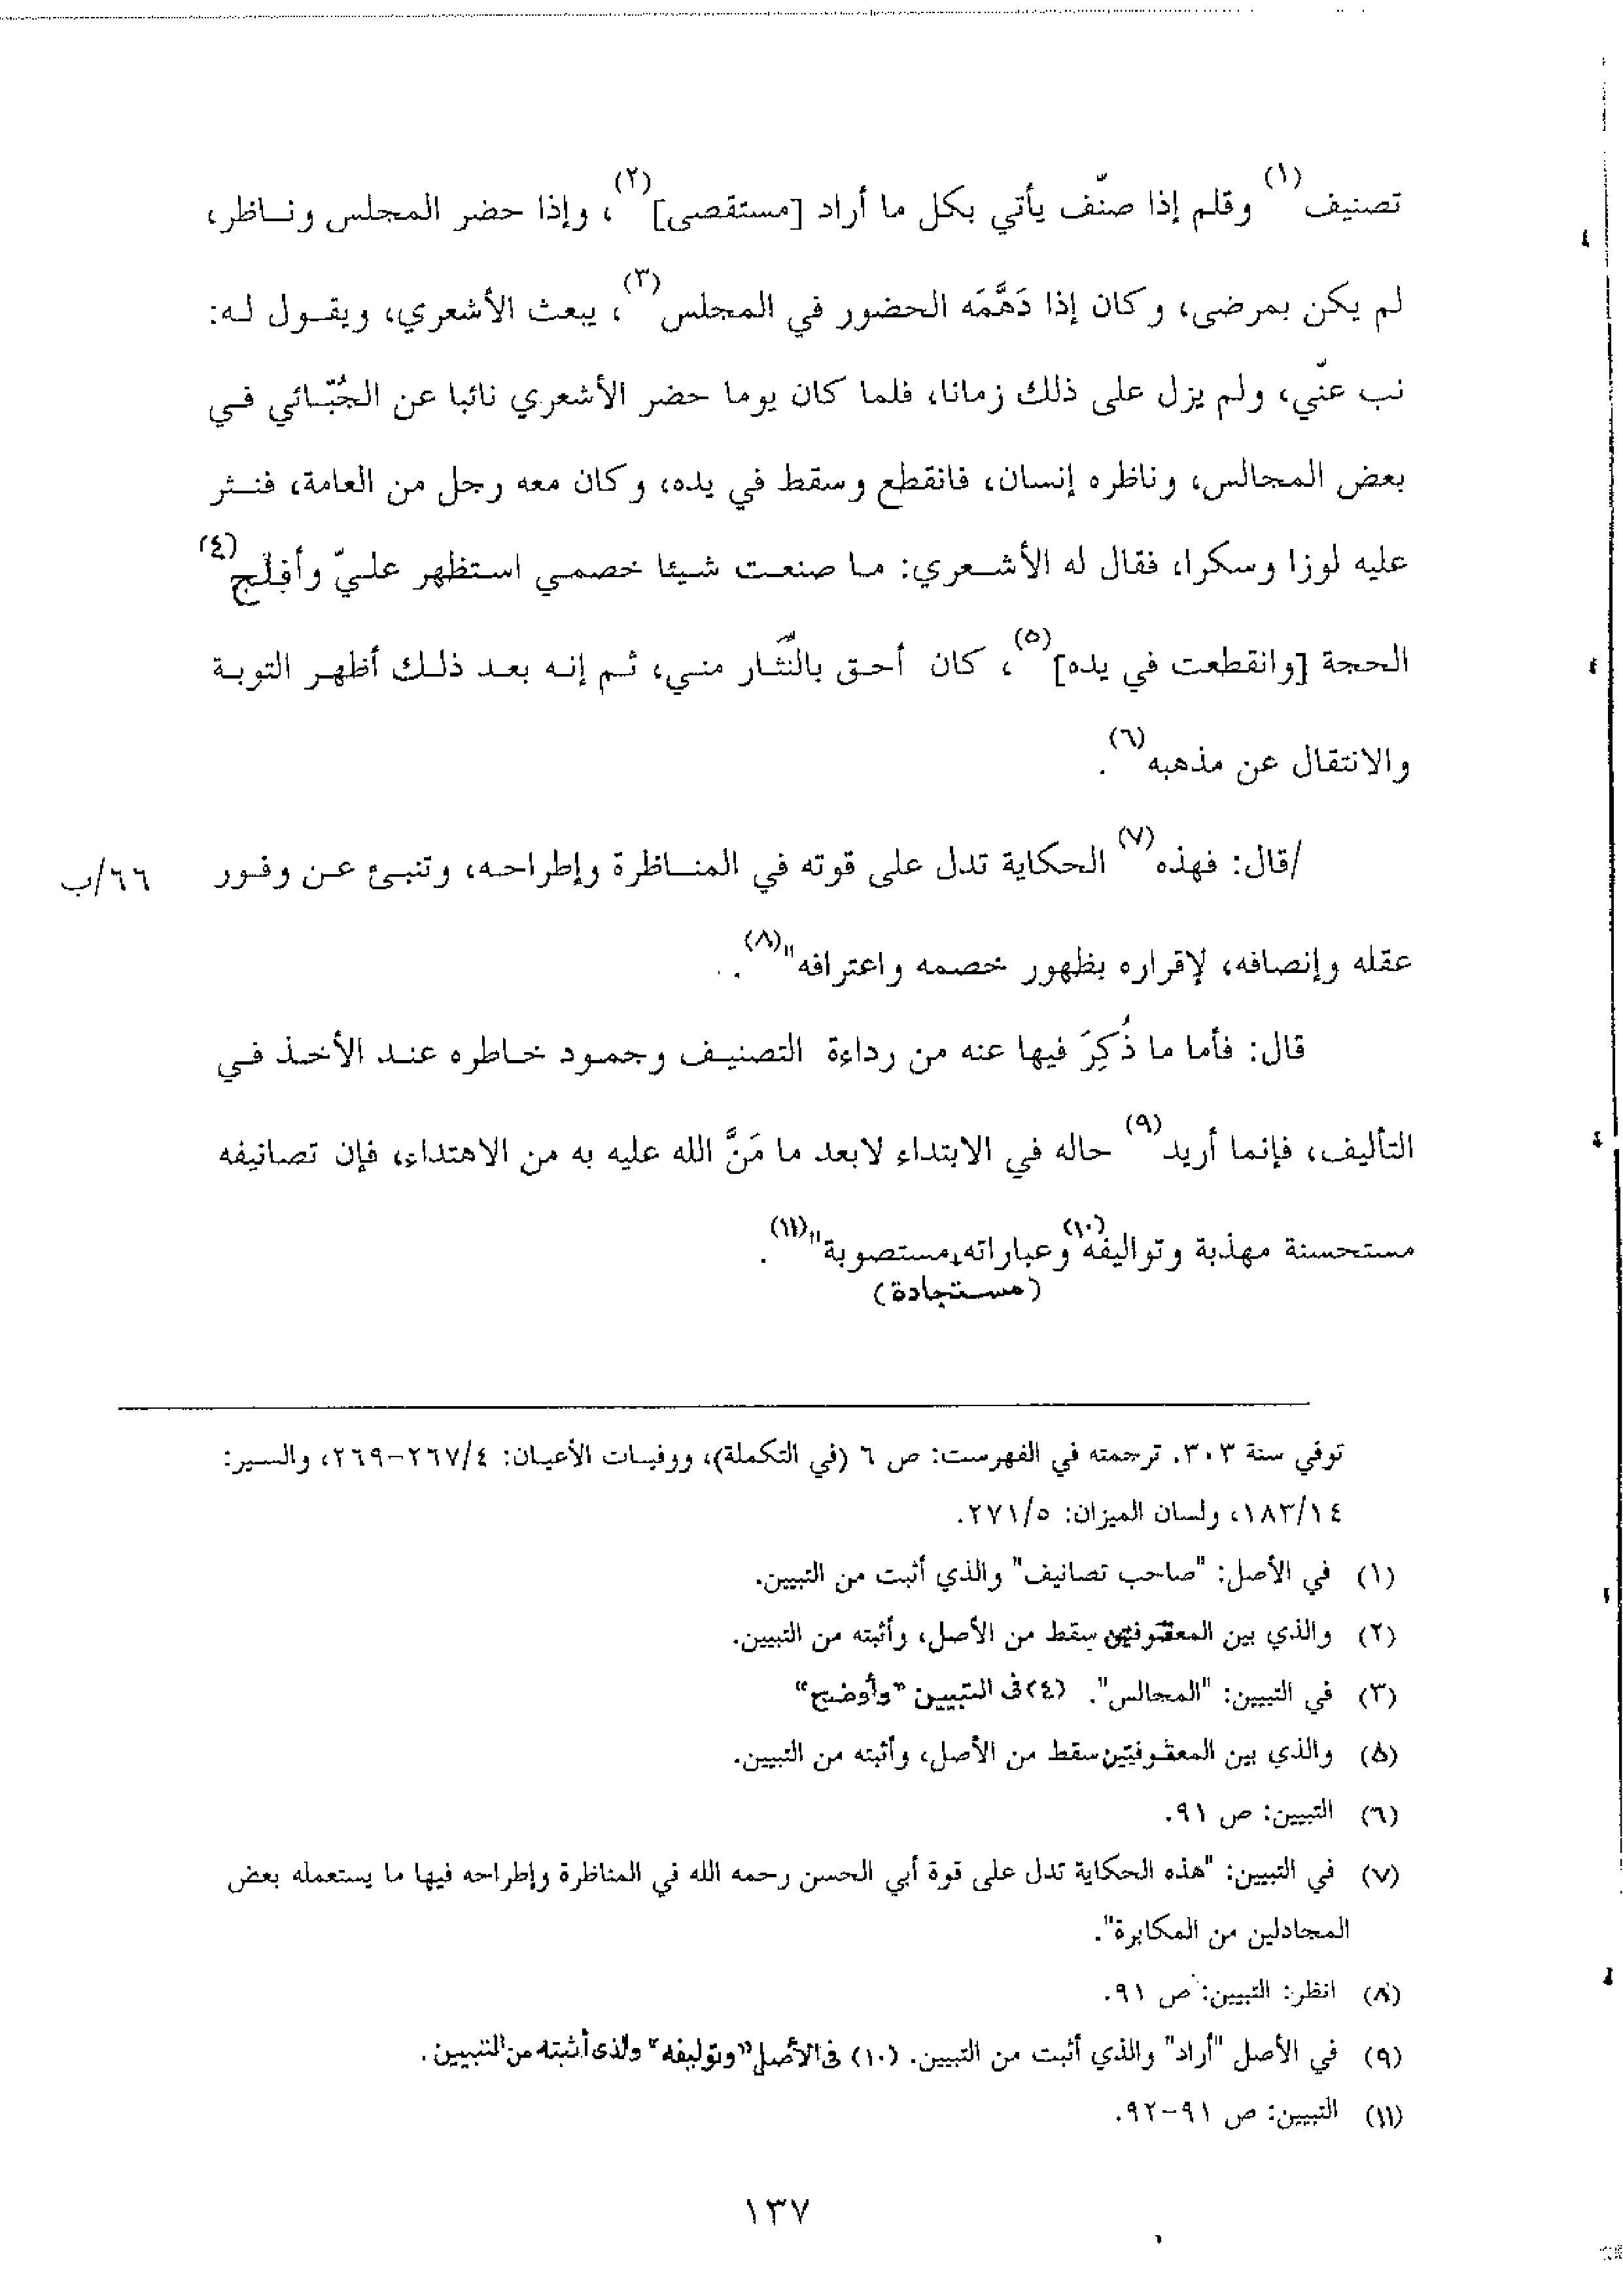 تصنيف(١) وقلم إذا صنّف يأتي بكل ما أراد [مستقصى](٢)، وإذا حضر المجلس وناظر،
لم يكن بمرضى، وكان إذا دَهَّمَه الحضور في المجلس(٣)، يبعث الأشعري، ويقول له:
نب عنّي، ولم يزل على ذلك زمانا، فلما كان يوما حضر الأشعري نائبا عن الجُبّائي في
بعض المجالس، وناظره إنسان، فانقطع وسقط في يده، وكان معه رجل من العامة، فنثر
عليه لوزا وسكرا، فقال له الأشعري: ما صنعت شيئا خصمي استظهر عليّ وأفلج(٤)
الحجة [وانقطعت في يده](٥)، كان أحق بالنّثار مني، ثم إنه بعد ذلك أظهر التوبة
والانتقال عن مذهبه(٦).
/قال: فهذه(٧) الحكاية تدل على قوته في المناظرة وإطراحه، وتنبئ عن وفور
٦٦/ب
عقله وإنصافه، لإقراره بظهور خصمه واعترافه"(٨).
قال: فأما ما ذُكِرَ فيها عنه من رداءة التصنيف وجمود خاطره عند الأخذ في
التأليف، فإنما أريد(٩) حاله في الابتداء لابعد ما مَنَّ الله عليه به من الاهتداء، فإن تصانيفه
مستحسنة مهذبة وتواليفه(١٠) وعباراته مستصوبة"(١١).
(مستجادة)
توفي سنة ٣٠٣. ترجمته في الفهرست: ص ٦ (في التكملة)، ووفيات الأعيان: ٢٦٧/٤-٢٦٩، والسير:
١٨٣/١٤، ولسان الميزان: ٢٧١/٥.
(١) في الأصل: "صاحب تصانيف" والذي أثبت من التبيين.
(٢) والذي بين المعقوفتين سقط من الأصل، وأثبته من التبيين.
(٣) في التبيين: "المجالس". (٤) في التبيين "وأوضح"
(٥) والذي بين المعقوفتين سقط من الأصل، وأثبته من التبيين.
(٦) التبيين: ص ٩١.
(٧) في التبيين: "هذه الحكاية تدل على قوة أبي الحسن رحمه الله في المناظرة وإطراحه فيها ما يستعمله بعض
المجادلين من المكابرة".
(٨) انظر: التبيين: ص ٩١.
(٩) في الأصل "أراد" والذي أثبت من التبيين. (١٠) في الأصل "وتوليفه" ولذى أثبته من التبيين.
(١١) التبيين: ص ٩١-٩٢.
١٣٧